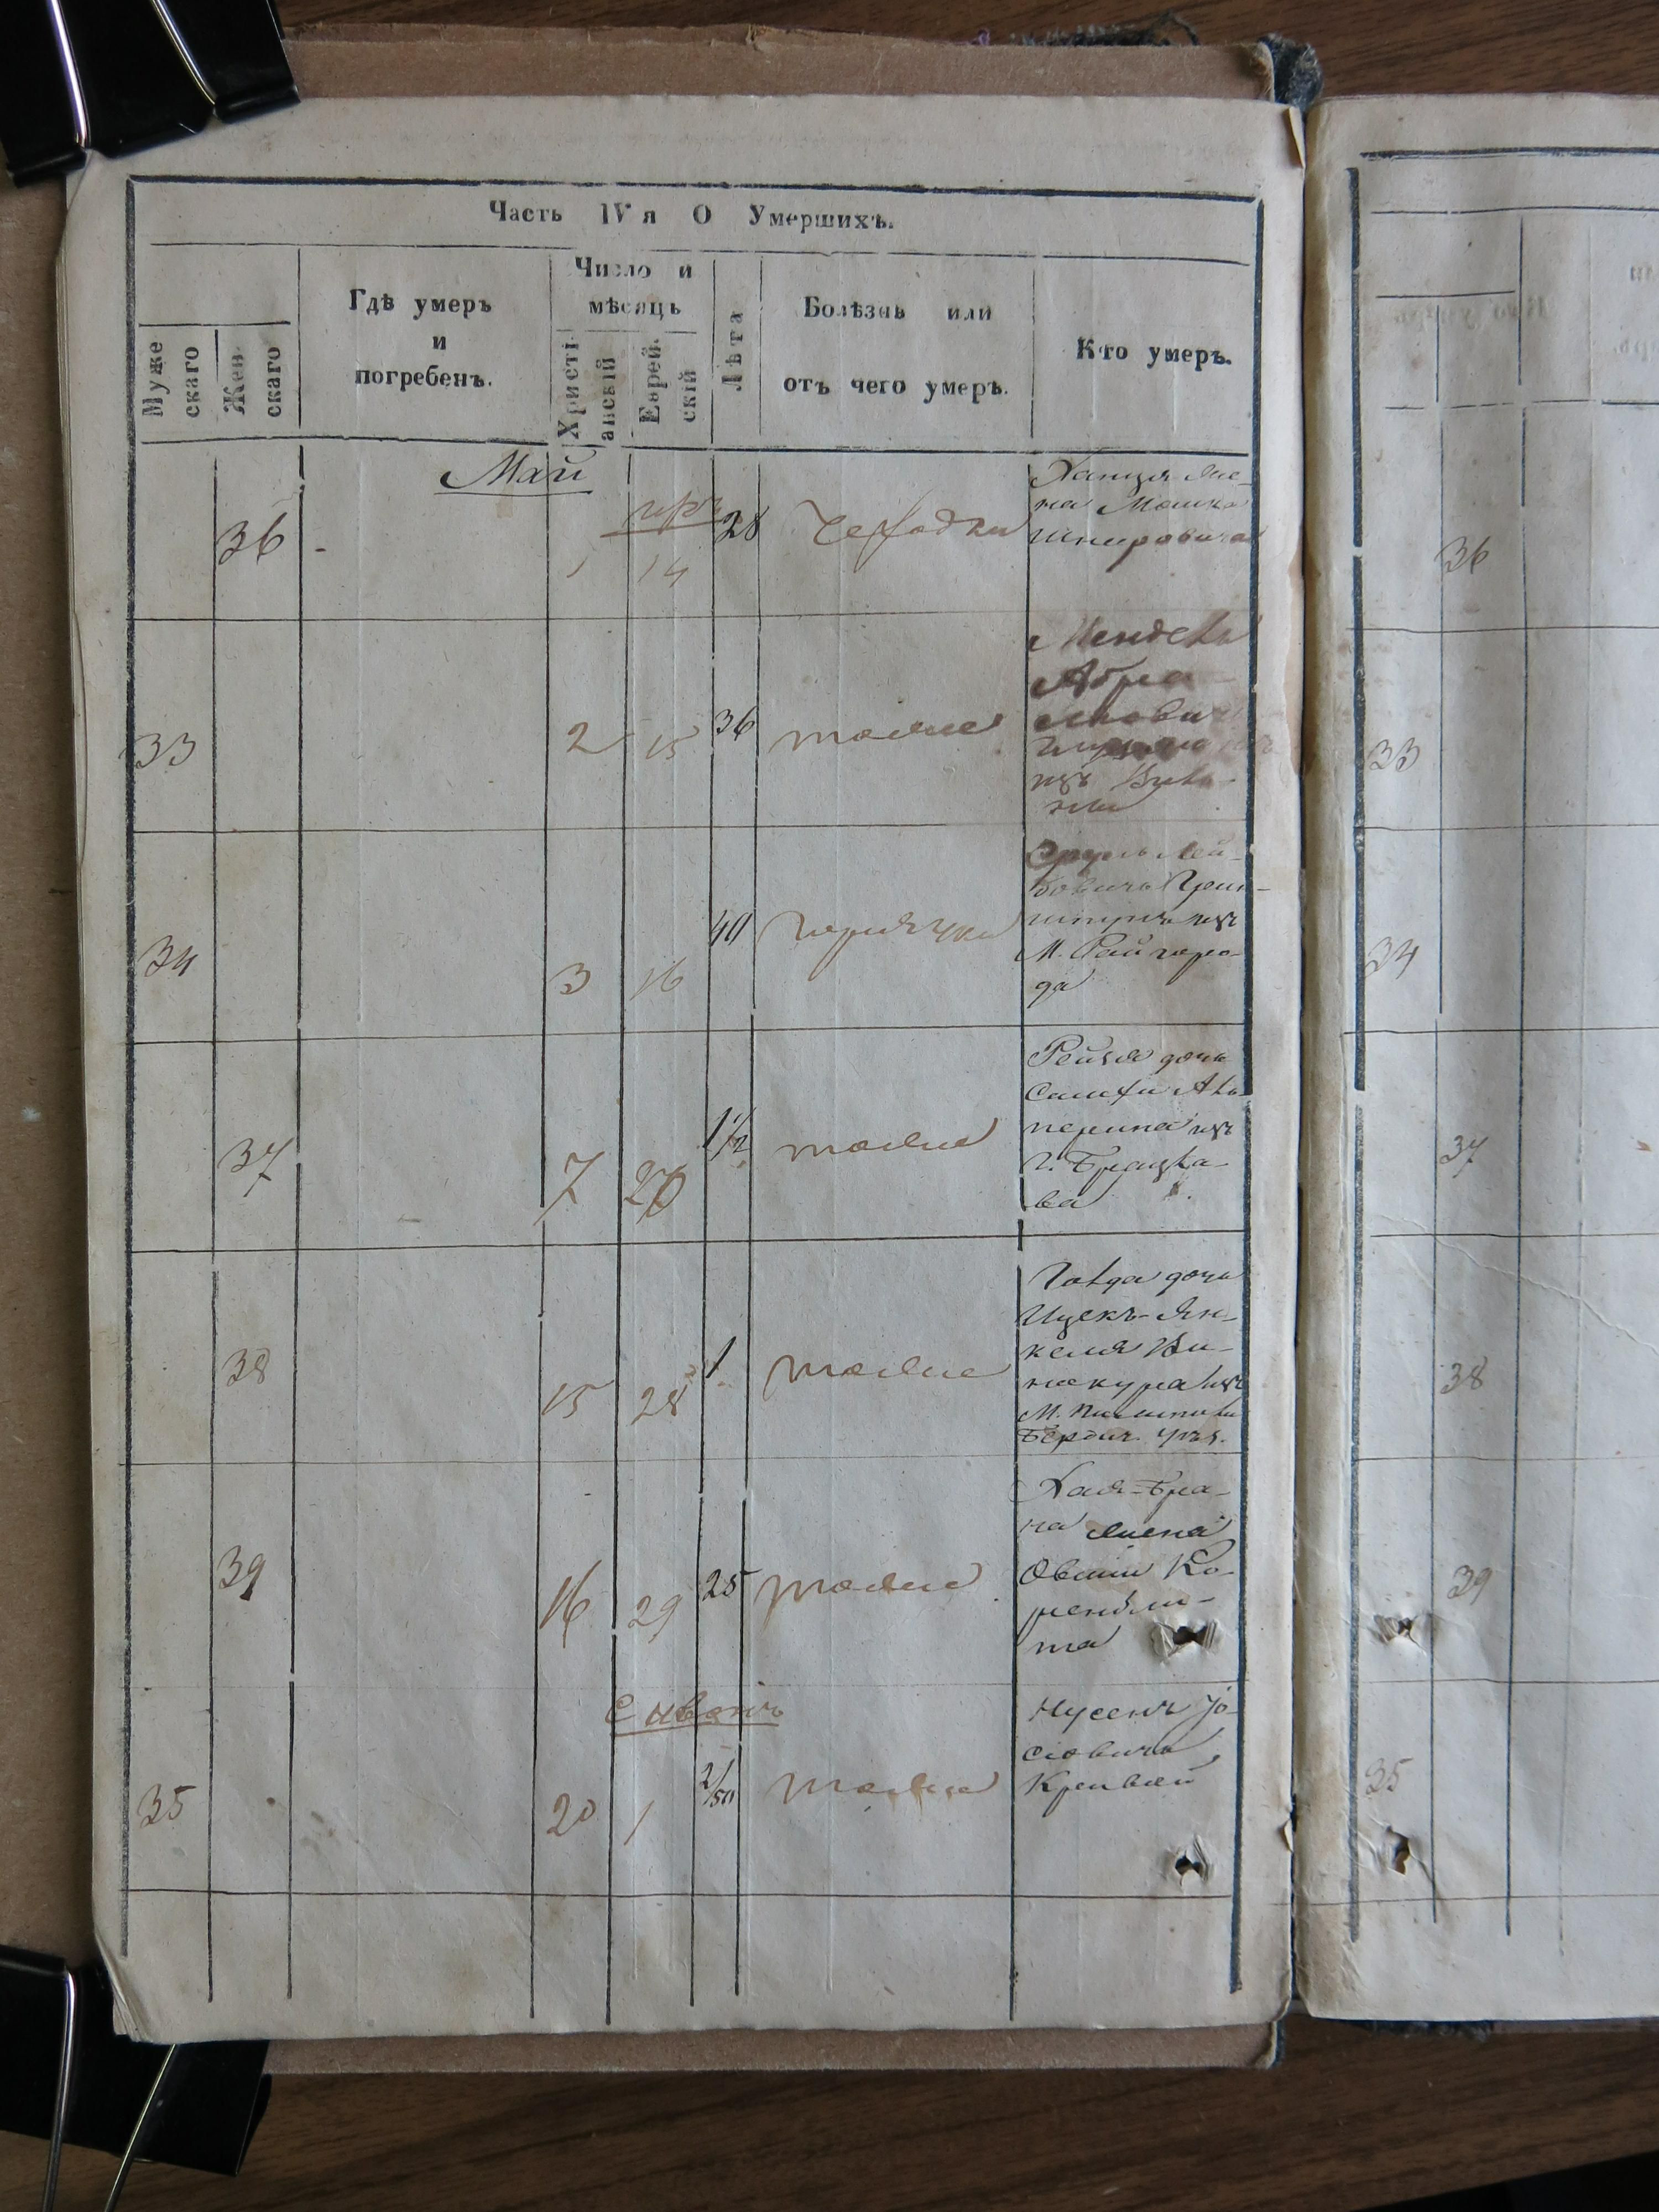 Часть IV я О Умершихъ.
Муже
скаго
Жен
скаго
Гдѣ умеръ
и
погребенъ.
Число и
мѣсяцъ
Христі
анскій
Еврей
скій
Лѣта
Болѣзнь или
отъ чего умеръ.
Кто умеръ.
Май
36
1
14
28
Хання же-
на Мошка
33
2
15
36
тоже
Мендель
Абра
мовичъ
изъ
34
3
16
40
горячки
Лей-
бовичъ Грин-
шпунъ изъ
М. Райгоро-
да
37
7
20
1 1/2
тоже
Рейзя дочь
Аль
перина изъ
г. Брацла-
ва
38
15
28
1
тоже
Голда дочь
Ицекъ-Ян-
келя Ви-
нокура изъ
М.
Бердич. уѣз.
39
16
29
25
тоже
Хая-Бра-
на жена
Овшии Ко-
ренбли-
та
Сивонъ
35
20
1
2/50
тоже
Нусенъ Іо-
сіовичъ
Кривой
36
33
34
37
38
39
35